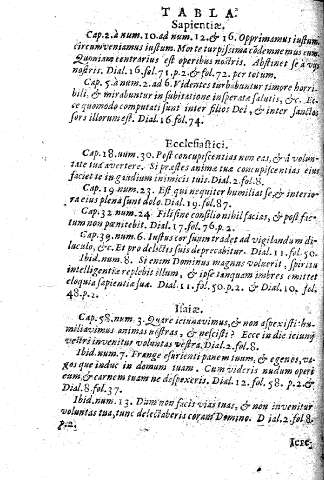 TABLA
Sapientiæ.
Cap.2.à num.10.ad num.12,& 16. Opprimamus iustum,
circumveniamus iustum. Morte turpissima cõdemnemus eum.
Quoniam contrarius est operibus nostris. Abstinet se à viis
nostris. Dial.16.fol.71,p.2.& fol.72. per totum.
Cap.5.à num.2.ad 6. Videntes turbabuntur timore horri-
bili, & mirabuntur in subitatione insperatæ salutis, &c. Ec-
ce quomodo computati sunt inter filios Dei, & inter sancto
sors illorum est. Dial.16 fol.74.
Ecclesiastici.
Cap.18.num.30. Post concupiscentias non eas, & à volun-
tate tua avertere. Si præstes animæ tuæ concupiscentias eius
faciet te in gaudium inimicis tuis. Dial.2.fol.8.
Cap.19 num.23. Est qui nequiter humiliat se, & interio-
ra eius plena sunt dolo. Dial.19.fol.87.
Cap.32 num.24. Fili sine consilio nihil facias, & post fac-
tum non pœnitebit. Dial.17.fol.76.p.2.
Cap.39.num.6. Iustus cor suum tradet ad vigilandum di-
luculo, &c. Et pro delictis suis deprecabitur. Dial.11.fol.50.
Ibid.num.8. Si enim Dominus magnus voluerit, spiritu
intelligentiæ replebit illum, & ipse tanquam imbres emittet
eloquia sapientiæ suæ. Dial.11.fol.50.p.2. & Dial.10. fol.
48.p.2.
Isaiæ.
Cap.58.num.3. Quare ieiunavimus, & non aspexisti: hu-
miliavimus animas nostras, & nescisti? Ecce in die ieiunij
vestri invenitur voluntas vestra. Dial.2.fol.8.
Ibid.num.7. Frange esurienti panem tuum, & egenos, va-
gos que induc in domum tuam. Cum videris nudum operi
eum, & carnem tuam ne despexeris. Dial.12.fol.58.p.2.&
Dial.8.fol.37.
Ibid.num.13. Dum non facis vias tuas, & non invenitur
voluntas tua, tunc delectaberis coram Domino. Dial.2.fol.8.
p.2.
Iere-